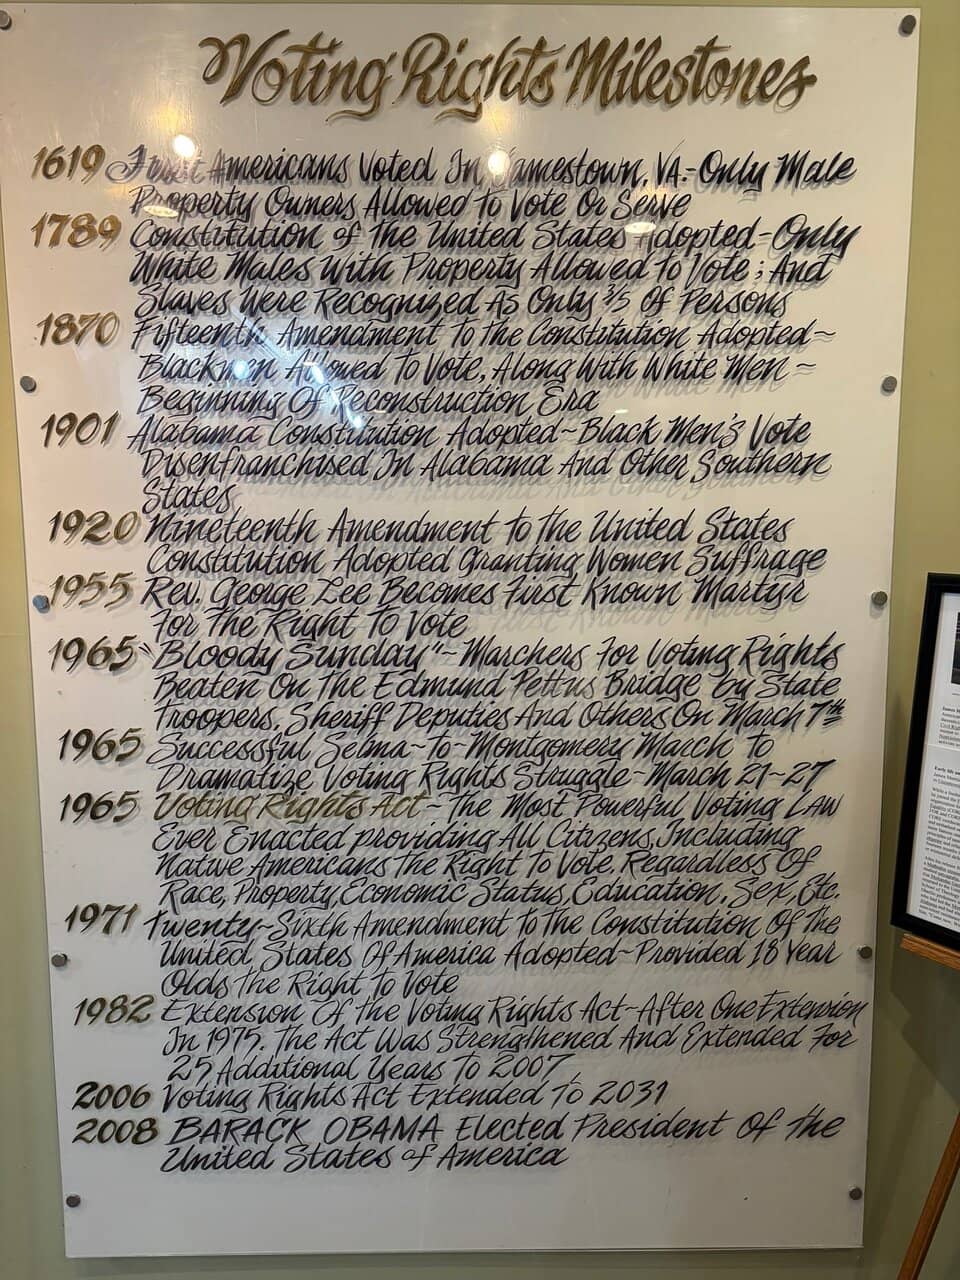 Voting Rights Milestones
1619 First Americans Voted In Jamestown, VA.-Only Male
Property Owners Allowed To Vote Or Serve
1789 Constitution of The United States Adopted-Only
White Males With Property Allowed To Vote; And
Slaves Were Recognized As Only 3/5 Of Persons
1870 Fifteenth Amendment To the Constitution Adopted~
Blackmen Allowed To Vote, Along With White Men ~
Beginning Of Reconstruction Era
1901 Alabama Constitution Adopted~Black Men's Vote
Disenfranchised In Alabama And Other Southern
States
1920 Nineteenth Amendment To The United States
Constitution Adopted Granting Women Suffrage
1955 Rev. George Lee Becomes First Known Martyr
For The Right To Vote
1965 "Bloody Sunday"~Marchers For Voting Rights
Beaten On The Edmund Pettus Bridge by State
Troopers, Sheriff Deputies And Others On March 7th
1965 Successful Selma~To~Montgomery March To
Dramatize Voting Rights Struggle~March 21~27
1965 Voting Rights Act~The Most Powerful Voting Law
Ever Enacted providing All Citizens, Including
Native Americans The Right To Vote, Regardless Of
Race, Property, Economic Status, Education, Sex, Etc.
1971 Twenty~Sixth Amendment To The Constitution Of The
United States Of America Adopted~Provided 18 Year
Olds The Right To Vote
1982 Extension Of the Voting Rights Act~After One Extension
In 1975, The Act Was Strengthened And Extended For
25 Additional Years To 2007
2006 Voting Rights Act Extended To 2031
2008 BARACK OBAMA Elected President Of the
United States of America